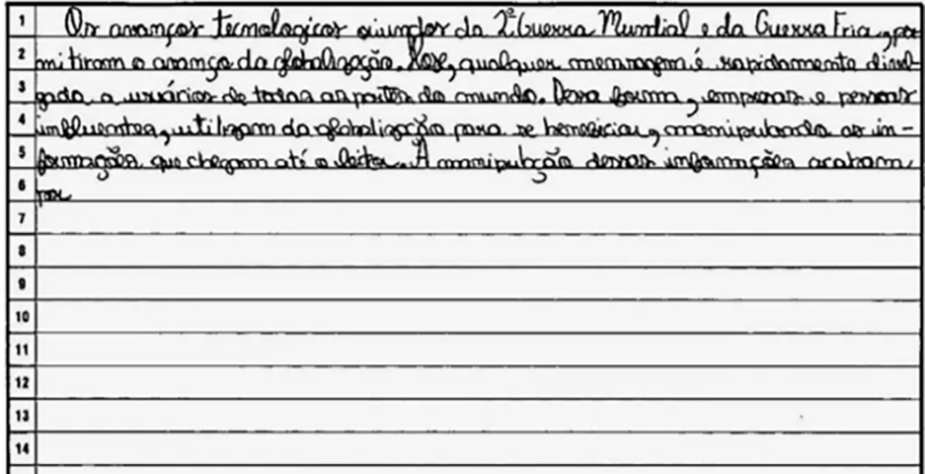 1 Os avanços tecnologicos oriundos da 2ª Guerra Mundial e da Guerra Fria, per
2 mitiram o avanço da globalização. Hoje, qualquer mensagem é rapidamente divul
3 gada a usuários de todas as partes do mundo. Dessa forma, empresas e pessoas
4 influentes, utilizam da globalização para se beneficiar, manipulando as in-
5 formações que chegam até o leitor. A manipulação dessas informações acabam
6 por
7
8
9
10
11
12
13
14